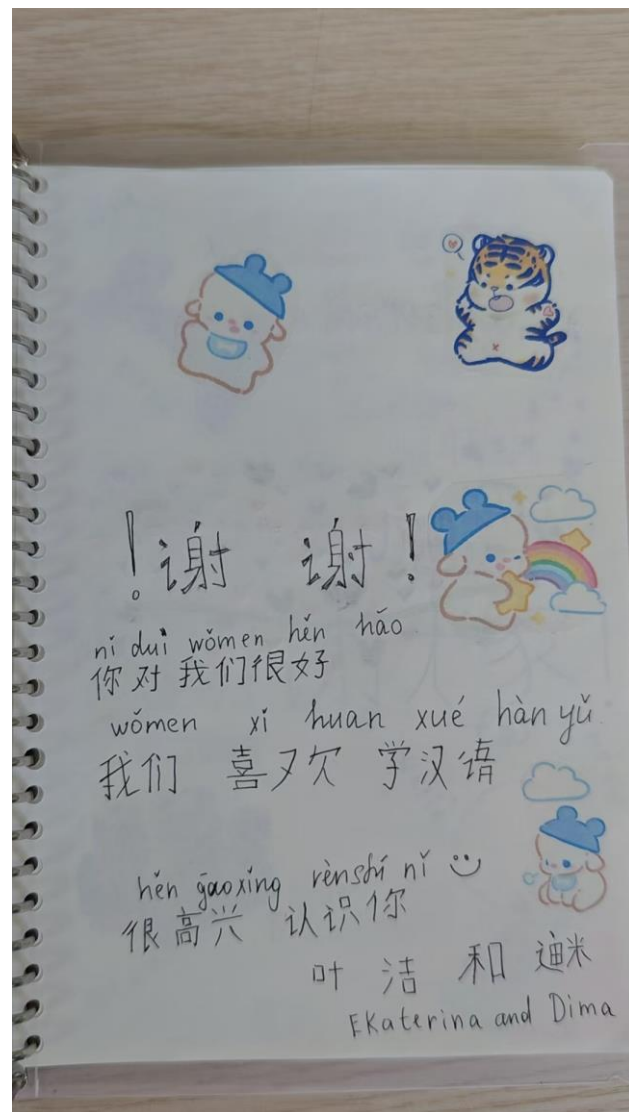 ！谢 谢！
nǐ duì wǒmen hěn hǎo
你对我们很好
wǒmen xǐ huan xué hàn yǔ
我们 喜欢 学汉语
hěn gāoxìng rènshí nǐ
很高兴 认识你
叶 洁 和 迪米
EKaterina and Dima